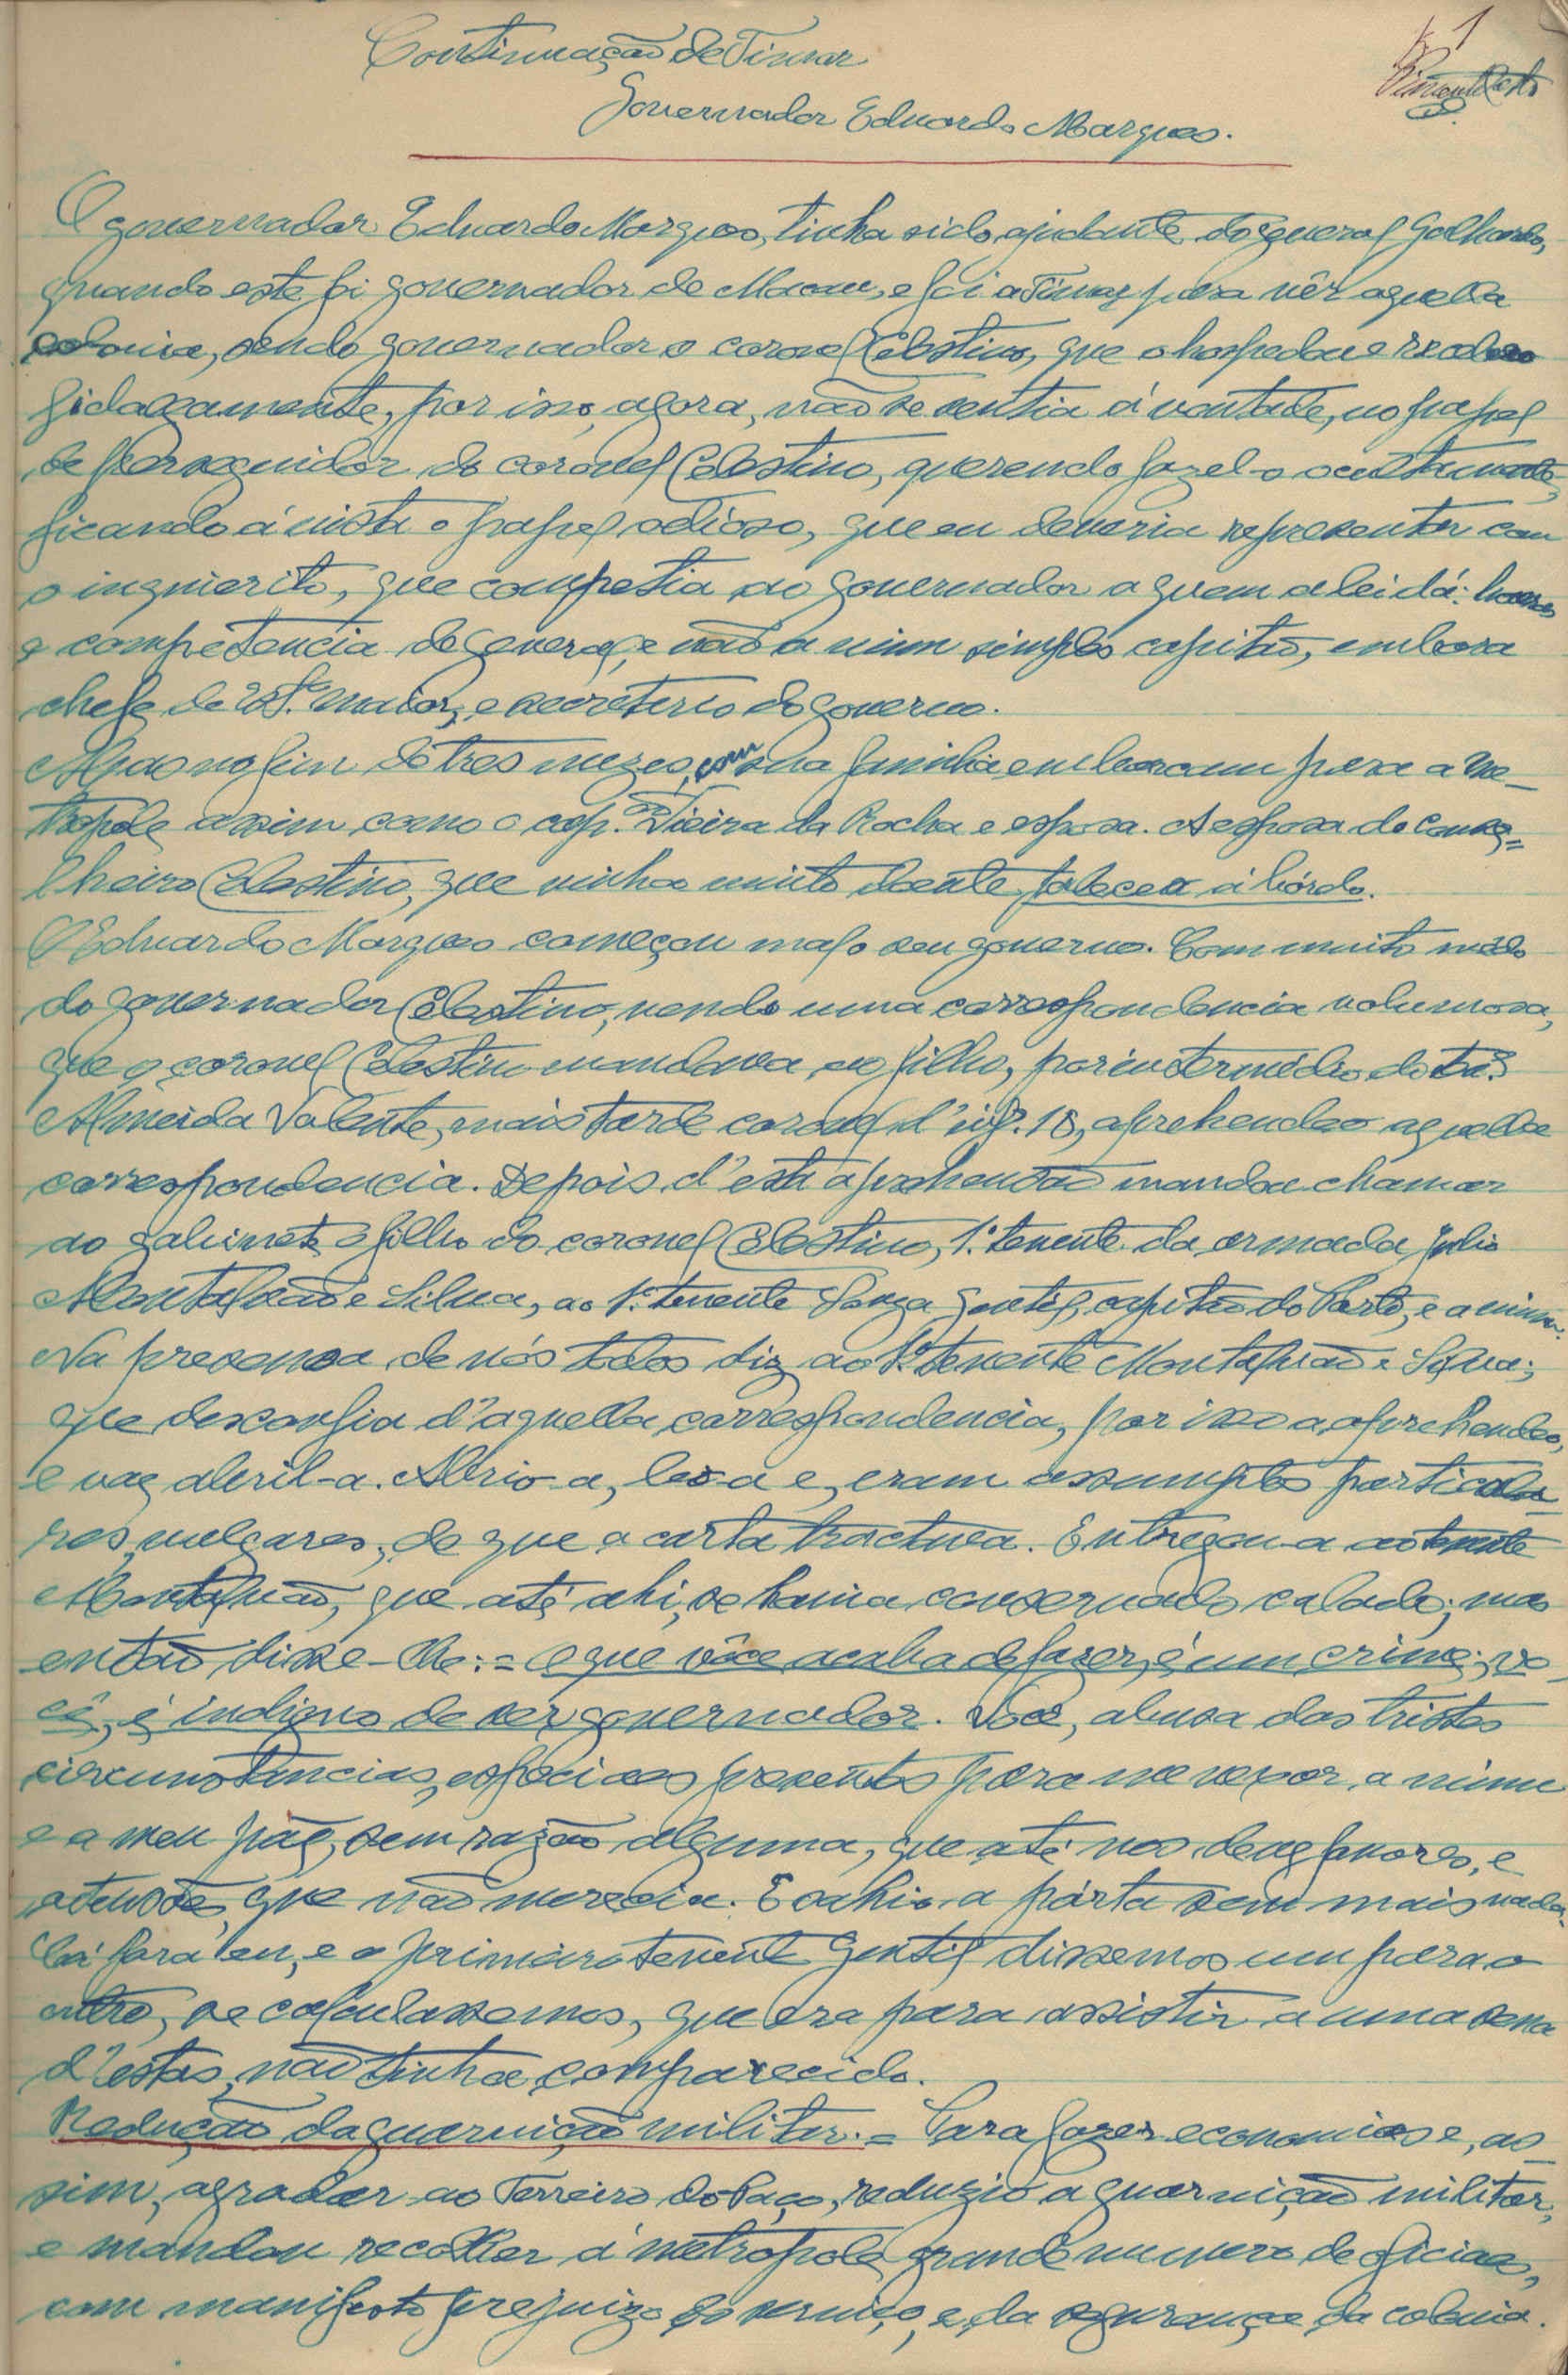 Continuação de Timor
1
Governador Eduardo Marques.
O governador Eduardo Marques, tinha sido ajudante do general Galhardo,
quando este foi governador de Macau, e foi a Timor para vêr aquella
colonia, sendo governador o coronel Celestino, que o hospedou e recebeo
fidalgamente, por isso, agora, não se sentia á vontade, no papel
de perseguidor do coronel Celestino, querendo fazel-o occultamente,
ficando á vista o papel odioso, que eu deveria representar com
o inquierito, que competia ao governador a quem a lei dá: honras
e competencia de general, e não a mim simples capitão, embora
chefe de Est. Maior, e secreterio do governo.
Mas no fim de tres mezes, com sua familia embarcam para a me-
tropole assim como o cap.ão Vieira da Rocha e esposa. A esposa do conse=
lheiro Celestino, que vinha muito doente, faleceu a bórdo.
O Eduardo Marques começou mal o seu governo. Com muito mêdo
do governador Celestino, vendo uma correspondencia volumosa,
que o coronel Celestino mandava ao filho, por intermédio do
Almeida Valente, mais tarde coronel d'inf. 18, aprehendeo aquella
correspondencia. Depois d'esta aprehensão mandou chamar
ao gabinete o filho do coronel Celestino, 1.º tenente da armada Julio
Montalvão e Silva, ao 1.º tenente Souza Gentil, capitão do Porto, e a mim.
Na presensa de nós todos diz ao 1.º tenente Montalvão e Silva;
que desconfia d'aquella correspondencia, por isso a aprehendeo,
e vae abril-a. Abrio-a, leo-a e, eram assumptos particula-
res, vulgares, de que a carta tractava. Entregou-a ao tenente
Montalvão, que até ahi, se havia conservado calado; mas
então disse-lhe:= o que vôce acaba de fazer, é um crime; vo-
cê, é indigno de ser governador. Você, abusa das tristes
circunstancias, especiaes presentes para me vexar, a mim
e a meu páe, sem razão alguma, que até nos deve favores, e
atensões, que não merecia. E sahio a pórta sem mais nada.
Cá fora eu, e o primeiro tenente Gentil dissemos um para o
outro, se calculassemos, que era para assistir a uma sena
d'estas, não tinha comparecido.
Redução da guarnição militar.= Para fazer economias e, as-
sim, agradar ao Terreiro do Paço, reduzio a guarnição militar,
e mandou recolher á metropole grande numero de oficiaes,
com manifesto prejuizo do serviço, e da segurança da colonia.